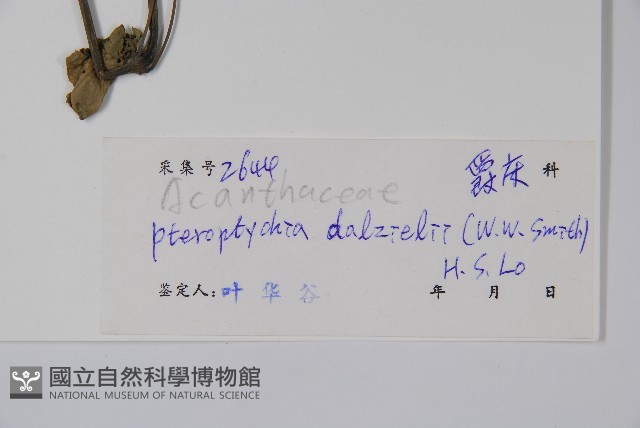 采集号 2644 爵床 科
Acanthaceae
pteroptychia dalzielii (W.W. Smith)
H. S. Lo
鉴定人: 叶华谷 年 月 日
國立自然科學博物館
NATIONAL MUSEUM OF NATURAL SCIENCE